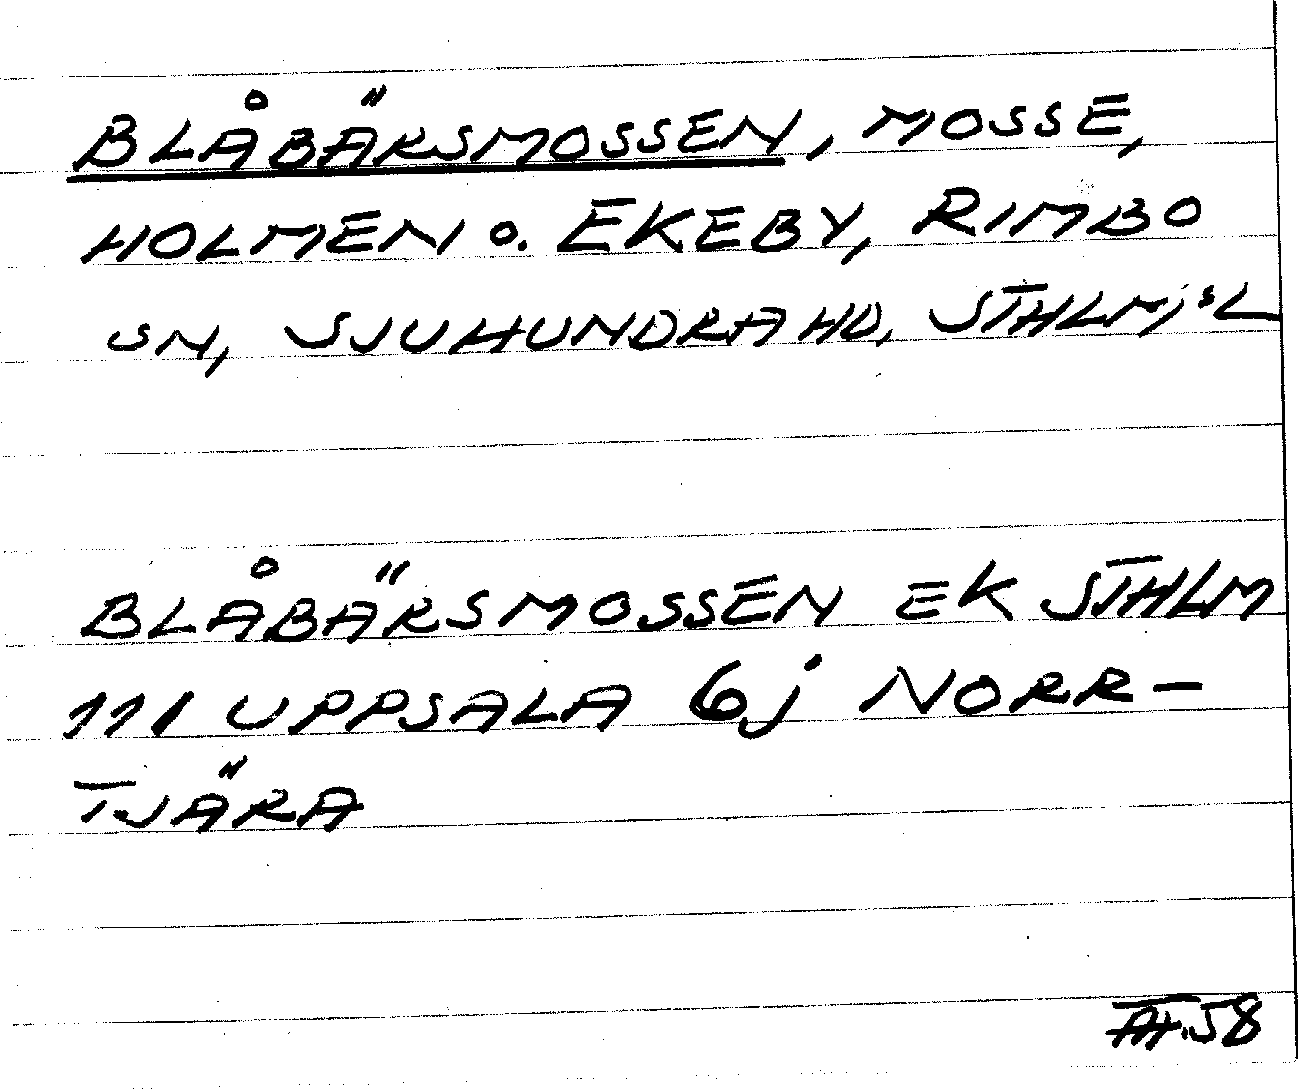 BLÅBÄRSMOSSEN, MOSSE,
HOLMEN o. EKEBY, RIMBO
SN, SJUHUNDRA HD, STHLM:S L
BLÅBÄRSMOSSEN EK STHLM
111 UPPSALA 6j NORR-
TJÄRA
58